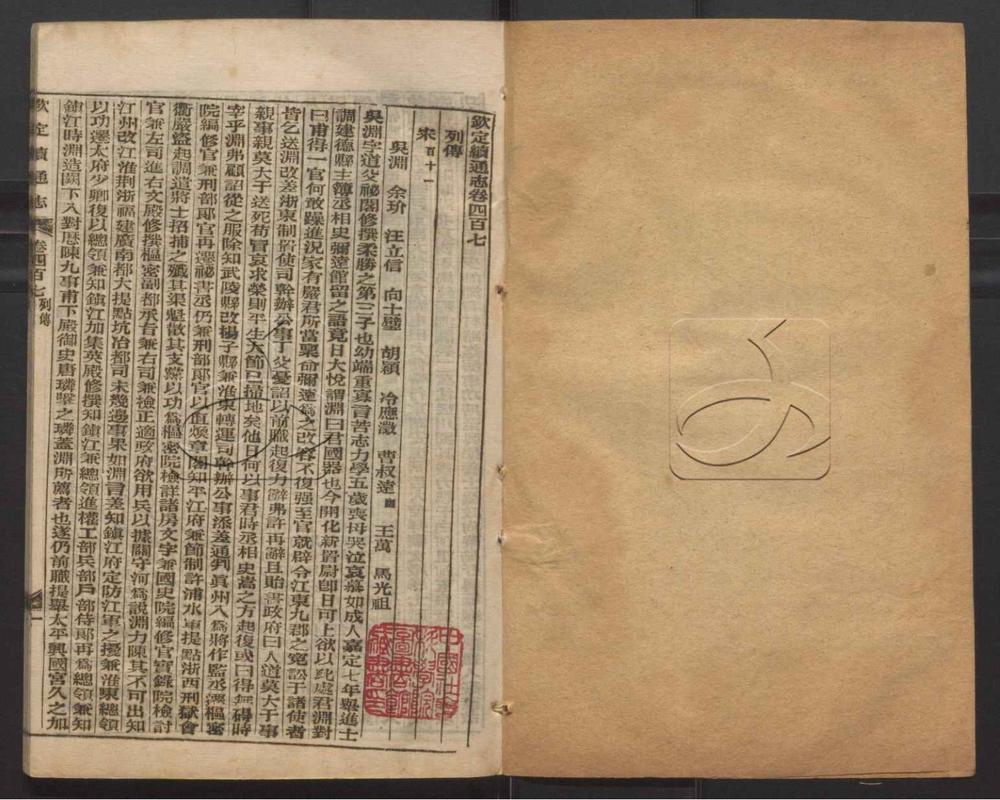 欽定續通志卷四百七
列傳
宋百十一
吳淵 余玠 汪立信 向士璧 胡穎 冷應澂 曹叔遠 王萬 馬光祖
吳淵字道父祕閣修撰柔勝之第三子也幼端重寡言苦志力學五歲喪母哭泣哀慕如成人嘉定七年舉進士
調建德縣主簿丞相史彌遠館留之語竟日大悅謂淵曰君國器也今開化新置尉卽日可上欲以此處君淵對
曰甫得一官何敢躁進況家有嚴君所當稟命彌遠爲之改容不復强至官就辟令江東九郡之寃訟于諸使者
皆乞送淵改差浙東制置使司幹辦公事丁父憂詔以前職起復力辭弗許再辭且貽書政府曰人道莫大于事
親事親莫大于送死苟冒哀求榮則平生大節已掃地矣他日何以事君時丞相史嵩之方起復或曰得無碍時
宰乎淵弗顧詔從之服除知武陵縣改楊子縣兼淮東轉運司幹辦公事添差通判眞州入爲將作監丞遷樞密
院編修官兼刑部郎官再遷祕書丞仍兼刑部郎官以直煥章閣知平江府兼節制許浦水軍提點浙西刑獄會
衢嚴盜起調遣將士招捕之殲其渠魁散其支黨以功爲樞密院檢詳諸房文字兼國史院編修官實錄院檢討
官兼左司進右文殿修撰樞密副都承旨兼右司兼檢正適政府欲用兵以據關守河爲說淵力陳其不可出知
江州改江淮荆浙福建廣南都大提點坑冶都司未幾邊事果如淵言差知鎭江府定防江軍之擾兼淮東總領
以功遷太府少卿復以總領兼知鎭江加集英殿修撰知鎭江兼總領進權工部兵部戶部侍郎再爲總領兼知
鎭江時淵造闕下入對歷陳九事甫下殿御史唐璘擊之璘蓋淵所薦者也遂仍前職提舉太平興國宮久之加
欽定續通志 卷四百七 列傳 一